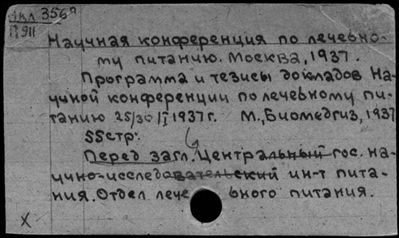 Вкл 3568
П911
Научная конференция по лечебно-
му питанию. Москва, 1937.
Программа и тезисы докладов На-
учной конференции по лечебному пи-
танию 25/30/I 1937г. М., Биомедгиз, 1937
55стр.
Перед загл. Центральный гос. на-
учно-исследовательский ин-т пита-
ния. Отдел лече ьного питания.
X